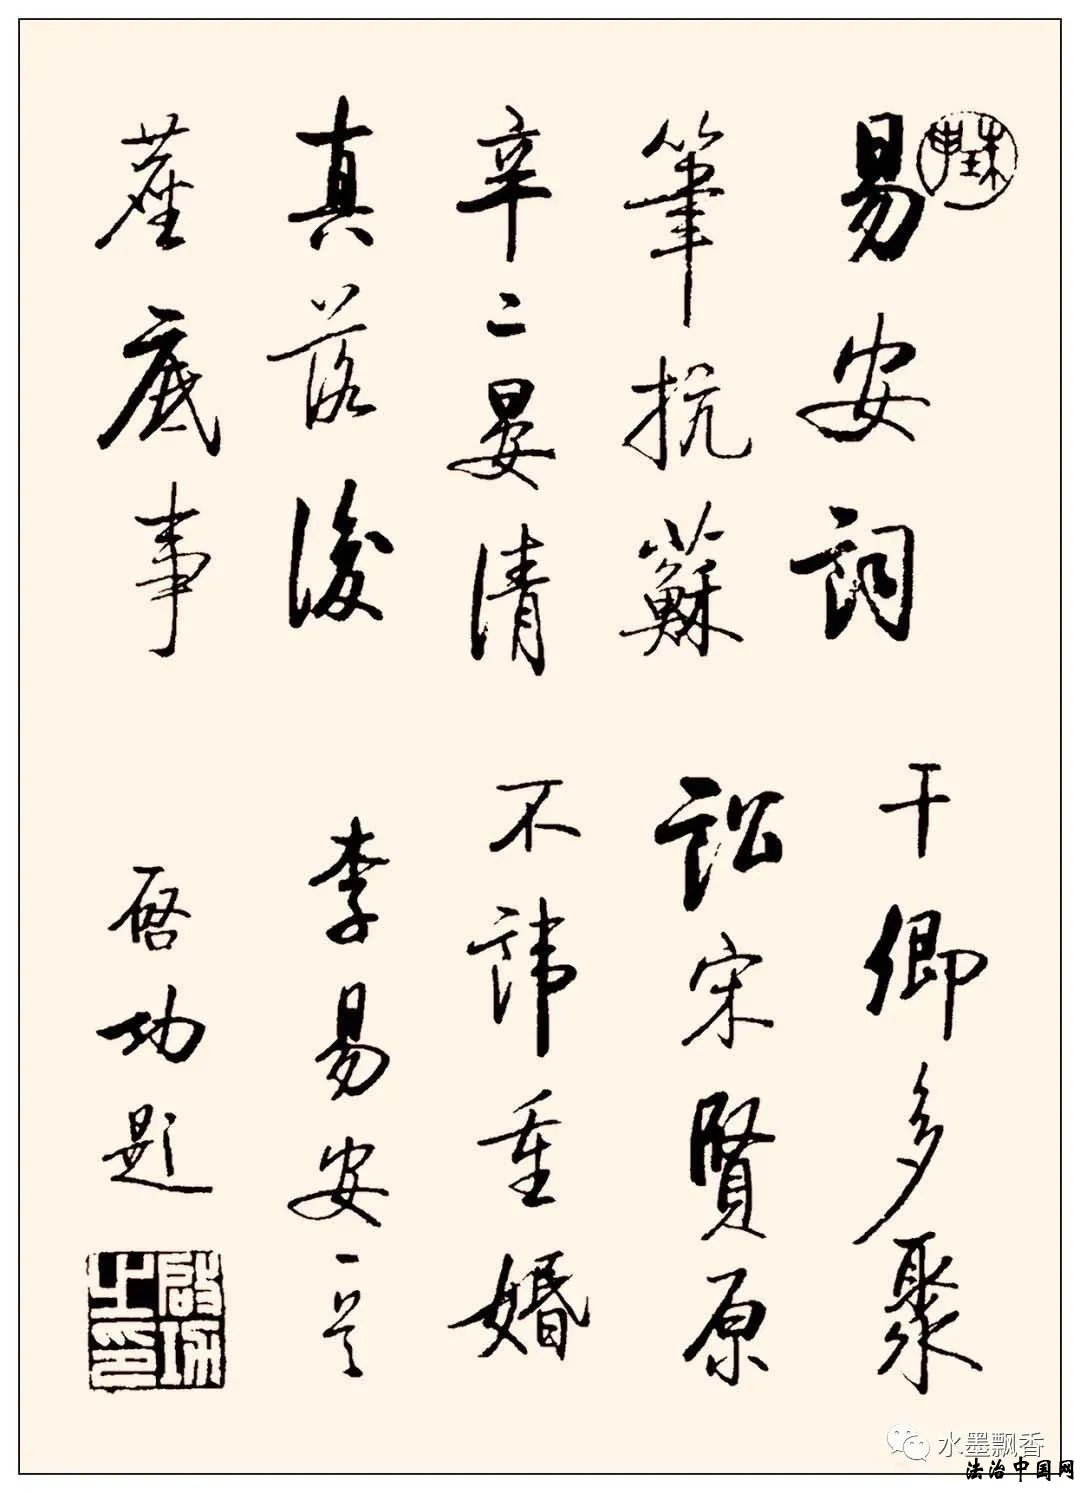 珠申
易安詞
筆抗蘇
辛二晏清
真落後
塵底事
干卿多聚
訟宋賢原
不諱重婚
李易安一首
啓功題
啟功之印
水墨飘香
法治中国网